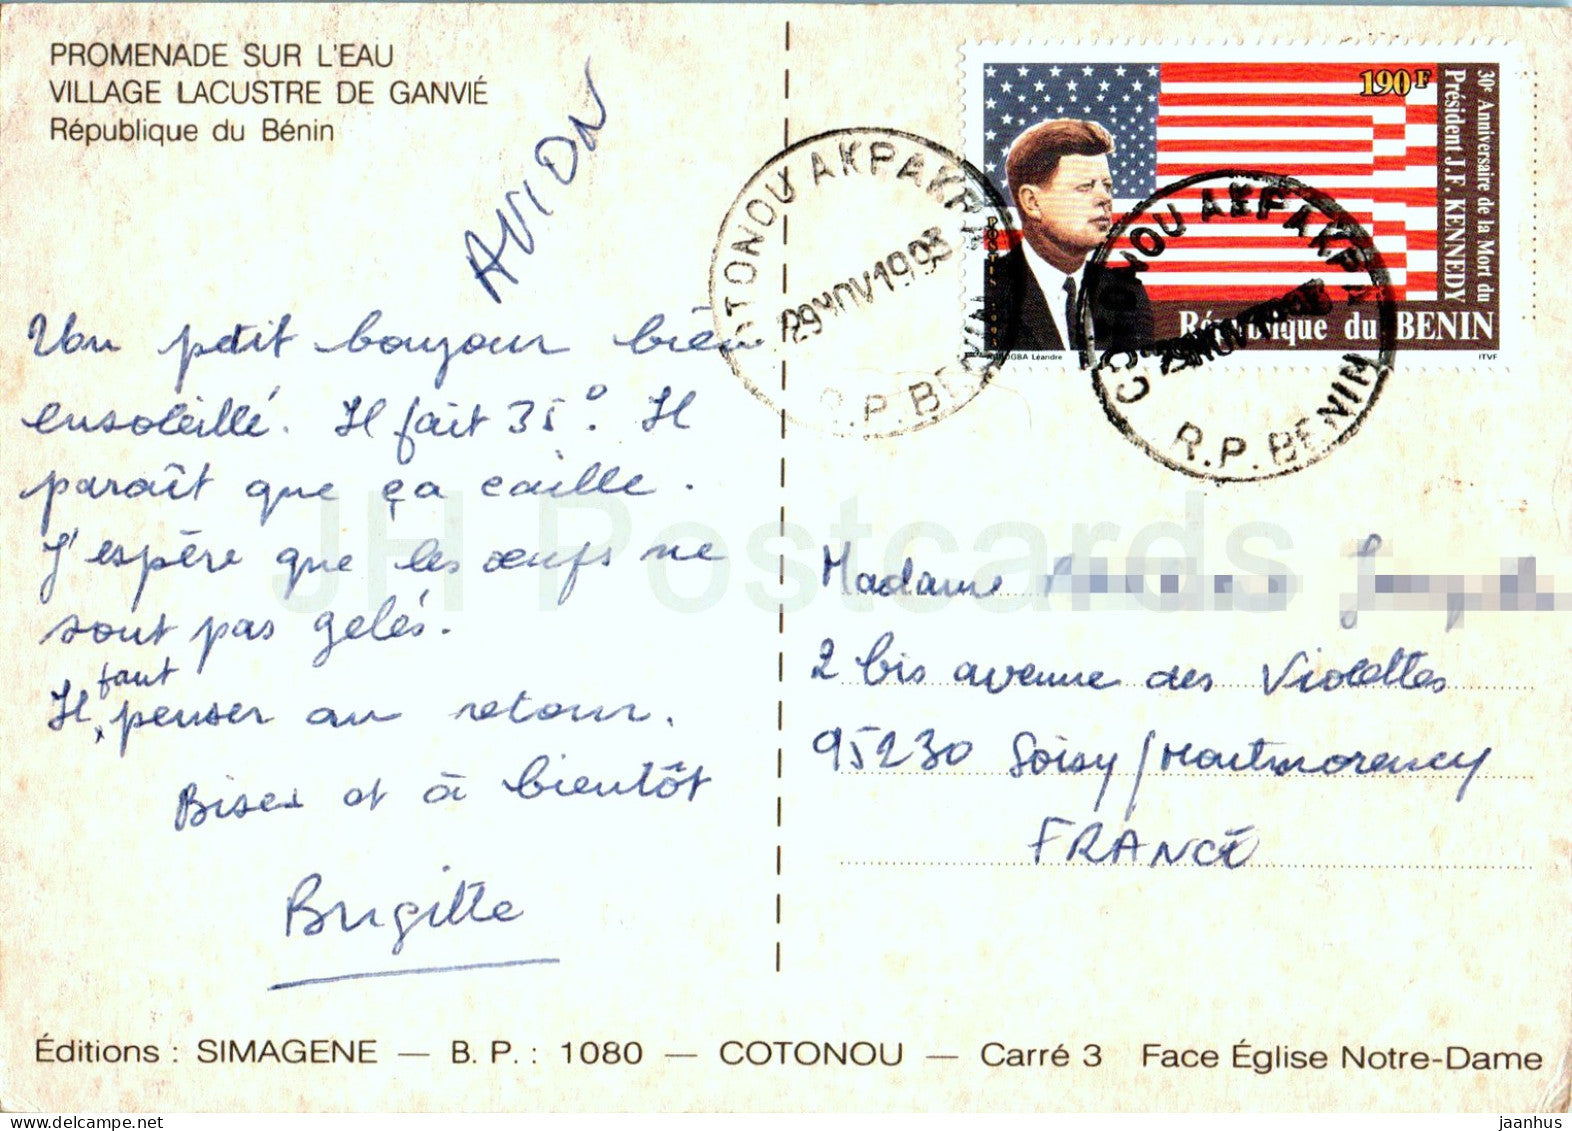 PROMENADE SUR L'EAU
VILLAGE LACUSTRE DE GANVIÉ
République du Bénin
AVION
Un petit bonjour bien
ensoleillé. Il fait 35°. Il
paraît que ça caille.
J'espère que les œufs ne
sont pas gelés.
Il faut penser au retour.
Bises et à bientôt
Brigitte
190F
30e Anniversaire de la Mort du
Président J.F. KENNEDY
République du BENIN
Léandre
ITVF
COTONOU AKPAKPA
29 NOV 1993
R.P. BENIN
COTONOU AKPAKPA
29 NOV 1993
R.P. BENIN
Madame
2 bis avenue des Violettes
95230 Soisy/Montmorency
FRANCE
Éditions : SIMAGENE — B. P. : 1080 — COTONOU — Carré 3 Face Église Notre-Dame
JH Postcards
jaanhus // delcampe.net